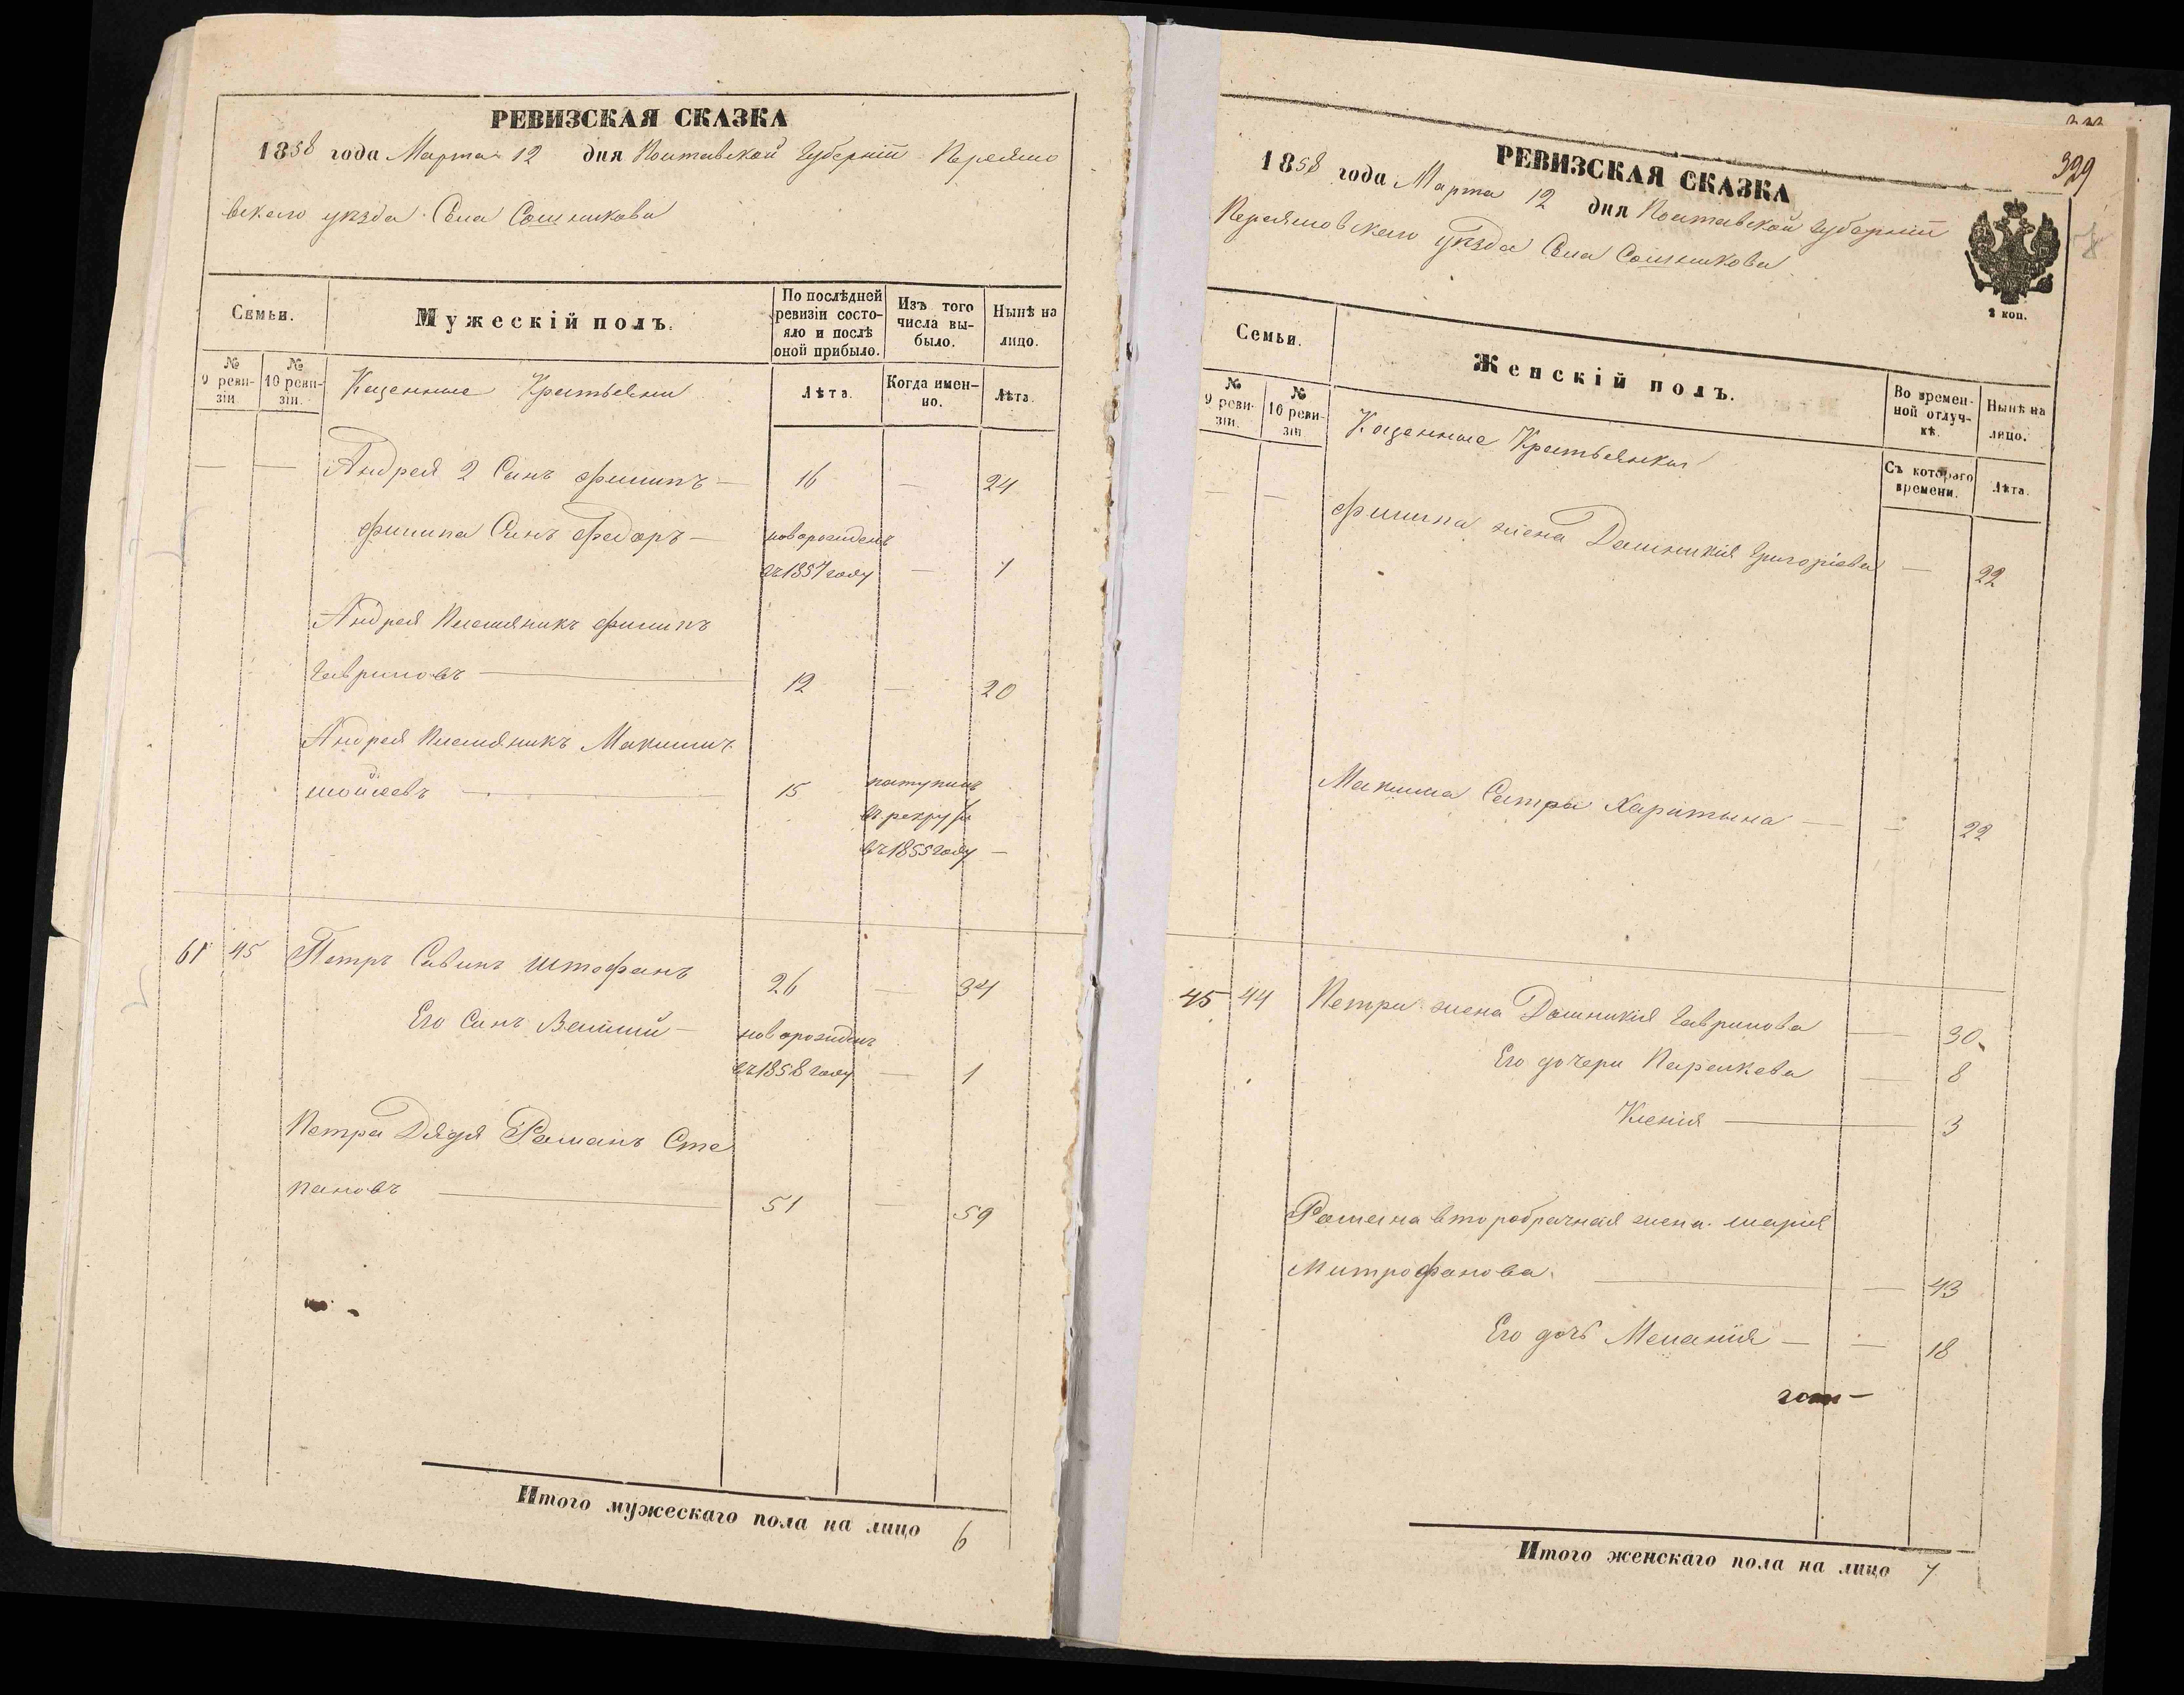 РЕВИЗСКАЯ СКАЗКА
1858 года Марта 12 дня Полтавской Губерніи Переясло
вского уѣзда Села Сошникова
Семьи.
Мужескій полъ.
По послѣдней ревизіи состояло и послѣ оной прибыло.
Изъ того числа выбыло.
Нынѣ на лицо.
№ 9 ревизіи.
№ 10 ревизіи.
Казенные Крестьяни
Лѣта.
Когда именно.
Лѣта.
— — Андрея 2 Сынъ Филипъ — 16 — 24
Филипа Сынъ Федоръ — новорожденъ
въ 1857 году — 1
Андрея Племяникъ Филипъ
Гавриловъ — 12 — 20
Андрея Племяникъ Максимъ
Мойсеевъ — 15 поступилъ
въ рекруты
въ 1855 году —
61 45 Петръ Савинъ Штефанъ 26 — 34
Его Сынъ Василий — новорожденъ
въ 1858 году — 1
Петра Дядя Романъ Сте
пановъ — 51 — 59
Итого мужескаго пола на лицо 6
329
РЕВИЗСКАЯ СКАЗКА
1858 года Марта 12 дня Полтавской Губерніи
Переясловского уѣзда Села Сошникова
2 коп.
Семьи.
Женскій полъ.
Во временной отлучкѣ.
Нынѣ на лицо.
№ 9 ревизіи.
№ 10 ревизіи.
Казенные Крестьянки
Съ котораго времени.
Лѣта.
— — Филипа жена Домникія Григоріева — 22
Максима Сестра Харитына — — 22
45 44 Петра жена Домникія Гаврилова — 30
Его дочери Параскева — 8
Ксенія — 3
Романа второбрачная жена Марія
Митрофанова — — 43
Его дочь Меланія — — 18
Итого женскаго пола на лицо 7